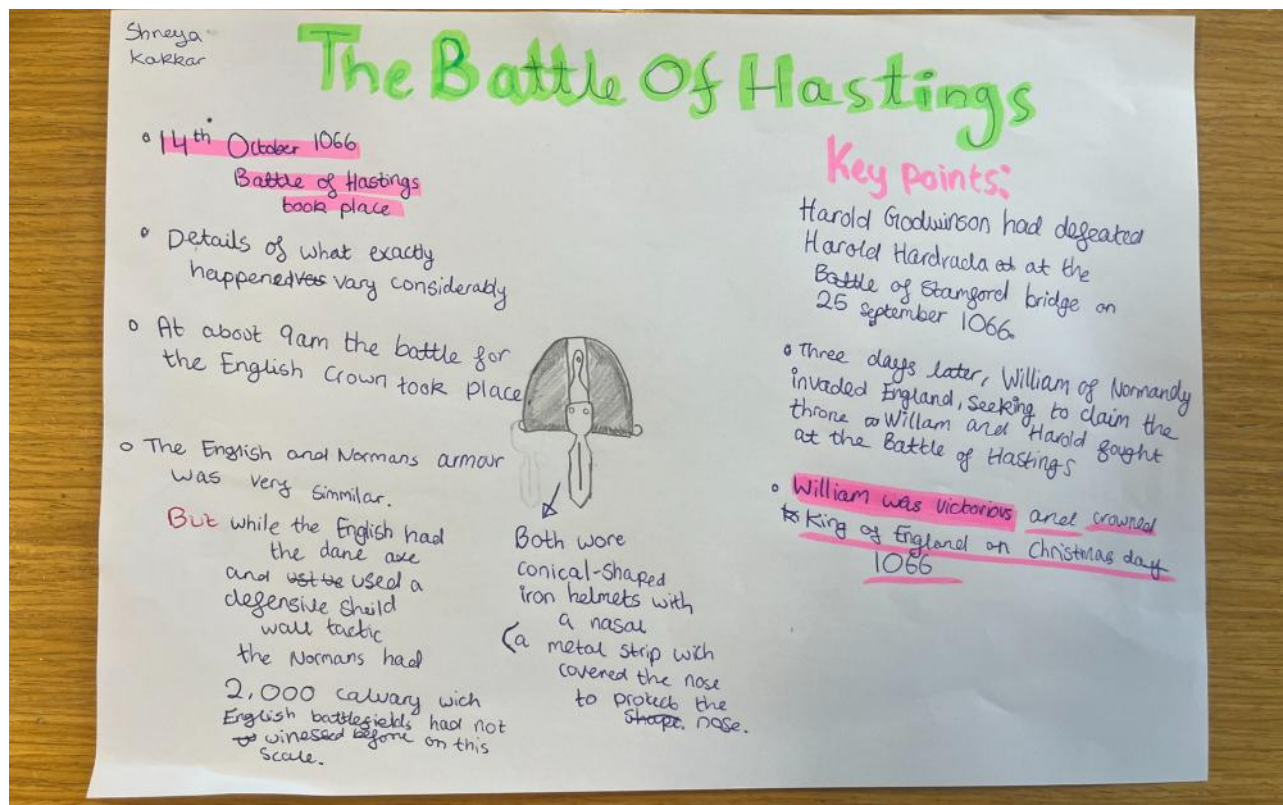 Shreya
Kakkar
The Battle Of Hastings
14th October 1066
Battle of Hastings
took place
Details of what exactly
happened vary considerably
At about 9am the battle for
the English Crown took place
The English and Normans armour
was very simmilar.
But while the English had
the dane axe
and used a
defensive sheild
wall tactic
the Normans had
2,000 calvary wich
English battlefields had not
winessed before on this
scale.
Both wore
conical-shaped
iron helmets with
a nasal
(a metal strip wich
covered the nose
to protect the
nose.
Key points:
Harold Godwinson had defeated
Harold Hardrada at the
Battle of Stamford bridge on
25 September 1066.
Three days later, William of Normandy
invaded England, seeking to claim the
throne Willam and Harold fought
at the Battle of Hastings
William was victorious and crowned
King of England on Christmas day
1066